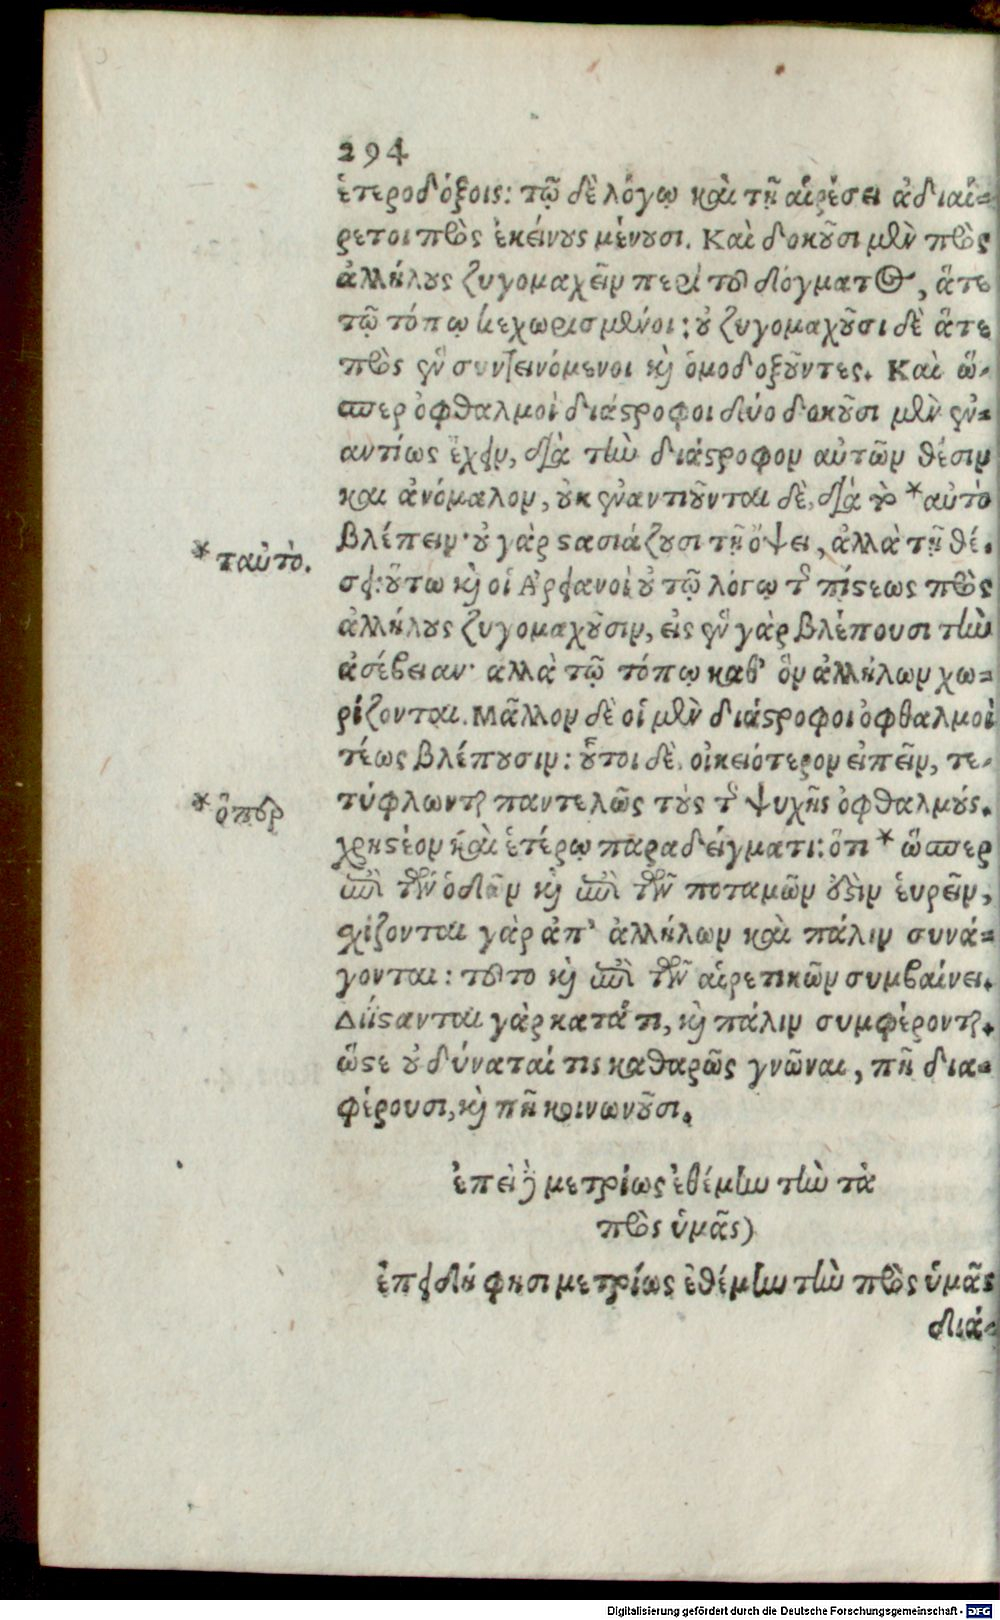 294
ἑτεροδόξοις: τῷ δὲ λόγῳ καὶ τῇ αἱρέσει ἀδιαί-
ρετοι πρὸς ἐκείνους μένουσι. Καὶ δοκοῦσι μὲν πρὸς
ἀλλήλους ζυγομαχεῖν περὶ τοῦ δόγματος, ἅτε
τῷ τόπῳ κεχωρισμένοι: οὐ ζυγομαχοῦσι δὲ ἅτε
πρὸς ἓν συντεινόμενοι καὶ ὁμοδοξοῦντες. Καὶ ὥ-
σπερ ὀφθαλμοὶ διάστροφοι δύο δοκοῦσι μὲν ἐν-
αντίως ἔχειν, διὰ τὴν διάστροφον αὐτῶν θέσιν
καὶ ἀνόμαλον, οὐκ ἐναντιοῦνται δὲ, διὰ τὸ * αὐτὸ
βλέπειν· οὐ γὰρ στασιάζουσι τῇ ὄψει, ἀλλὰ τῇ θέ-
* ταὐτὸ.
σει: οὕτω καὶ οἱ Ἀρειανοὶ οὐ τῷ λόγῳ τῆς πίστεως πρὸς
ἀλλήλους ζυγομαχοῦσιν, εἰς ἓν γὰρ βλέπουσι τὴν
ἀσέβειαν· ἀλλὰ τῷ τόπῳ καθ' ὃν ἀλλήλων χω-
ρίζονται. Μᾶλλον δὲ οἱ μὲν διάστροφοι ὀφθαλμοὶ
τέως βλέπουσιν: οὗτοι δὲ, οἰκειότερον εἰπεῖν, τε-
τύφλωνται παντελῶς τοὺς τῆς ψυχῆς ὀφθαλμούς.
* ὅπερ
χρηστέον καὶ ἑτέρῳ παραδείγματι: ὅτι * ὥσπερ
ἐπὶ τῶν ὁδῶν καὶ ἐπὶ τῶν ποταμῶν οὖσιν εὑρεῖν,
σχίζονται γὰρ ἀπ' ἀλλήλων καὶ πάλιν συνά-
γονται: τοῦτο καὶ ἐπὶ τῶν αἱρετικῶν συμβαίνει.
Διίστανται γὰρ κατά τι, καὶ πάλιν συμφέρονται.
ὥστε οὐ δύναταί τις καθαρῶς γνῶναι, πῆ δια-
φέρουσι, καὶ πῆ κοινωνοῦσι.
ἐπειδὴ μετρίως ἐθέμην τὴν τὰ
πρὸς ὑμᾶς)
ἐπειδή φησι μετρίως ἐθέμην τὴν πρὸς ὑμᾶς
διά-
Digitalisierung gefördert durch die Deutsche Forschungsgemeinschaft - DFG